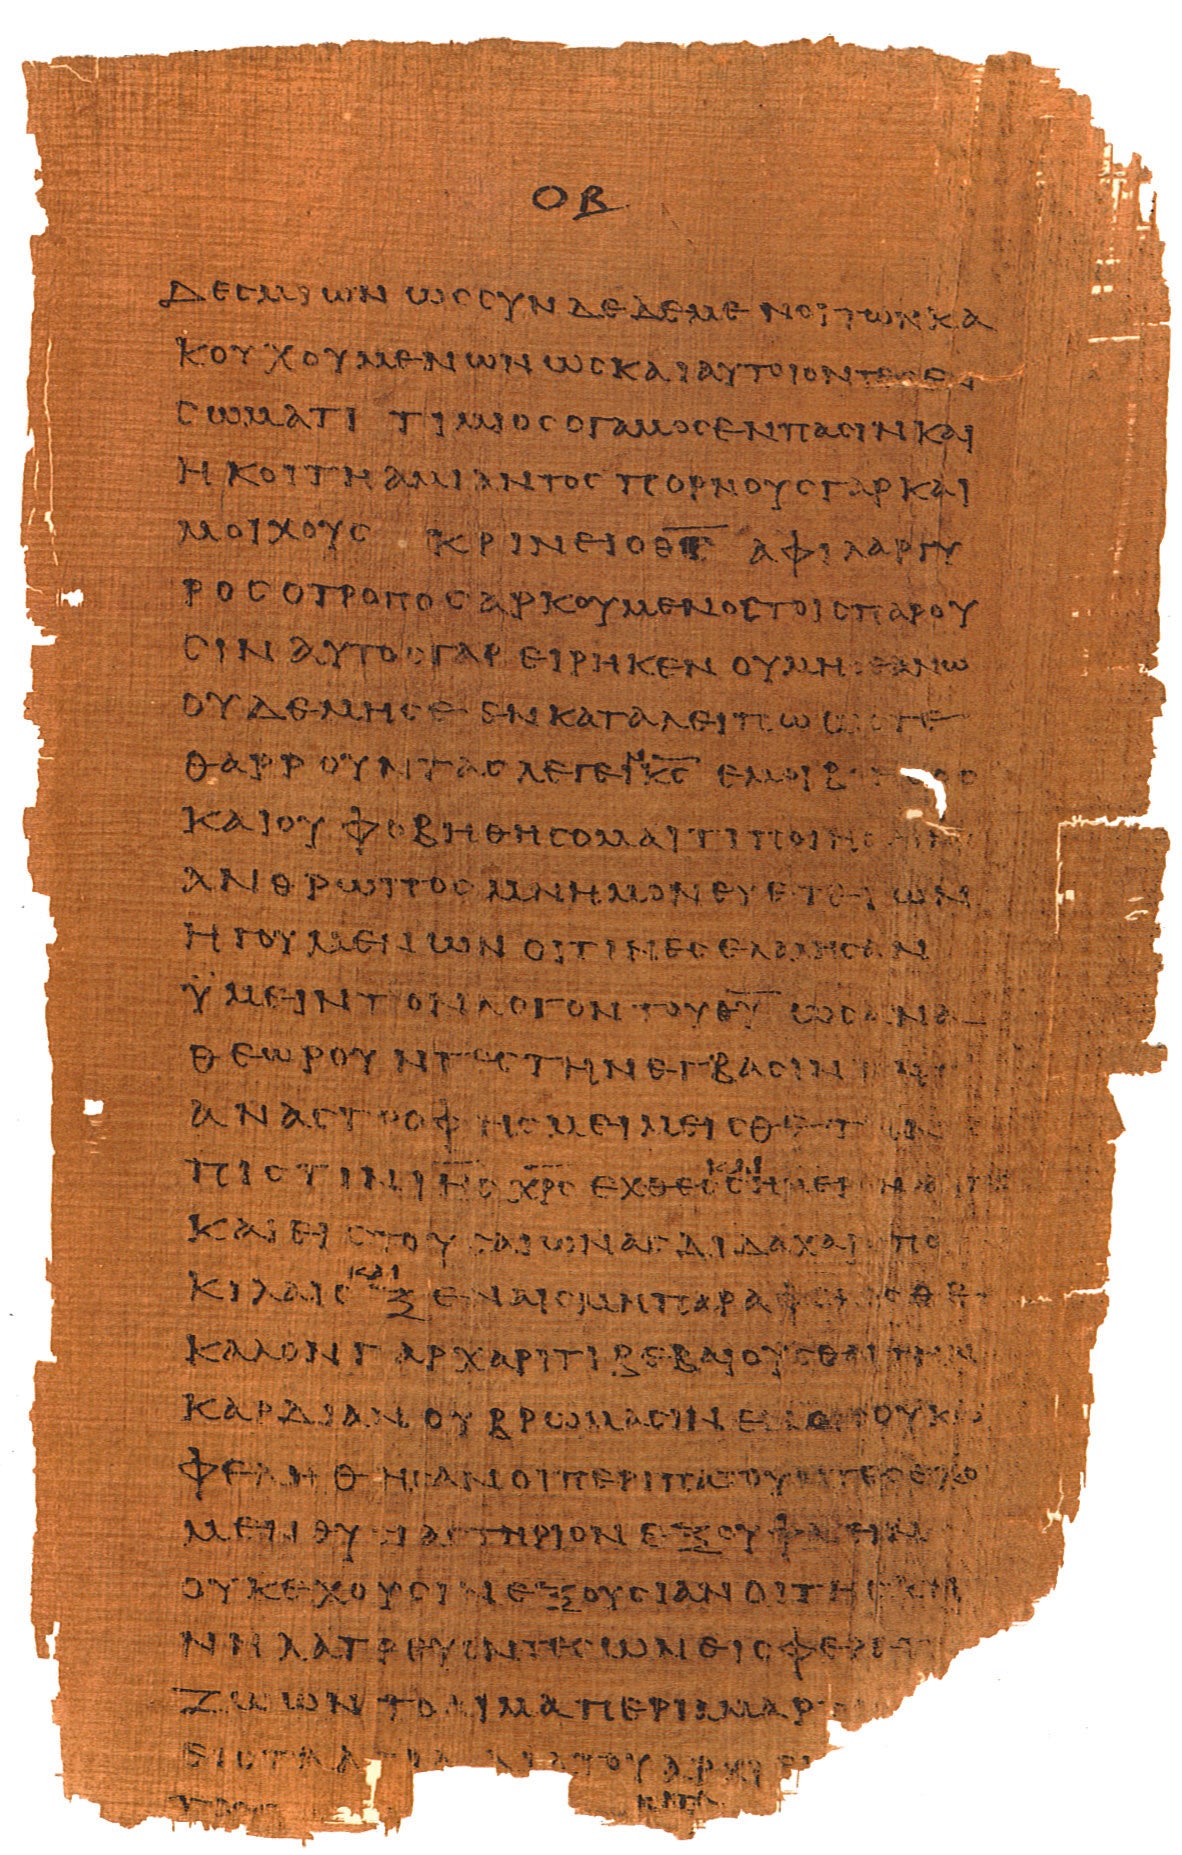 ΟΒ
ΔΕСΜΙΩΝ ΩССΥΝΔΕΔΕΜΕΝΟΙΤΩΝΚΑ
ΚΟΥΧΟΥΜΕΝΩΝΩСΚΑΙΑΥΤΟΙΟΝΤΕСΕΝ
СΩΜΑΤΙ ΤΙΜΙΟСΟΓΑΜΟСΕΝΠΑСΙΝΚΑΙ
ΗΚΟΙΤΗΑΜΙΑΝΤΟСΠΟΡΝΟΥСΓΑΡΚΑΙ
ΜΟΙΧΟΥС ΚΡΙΝΕΙΟΘ̅Σ̅ ΑΦΙΛΑΡΓΥ
ΡΟСΟΤΡΟΠΟСΑΡΚΟΥΜΕΝΟСΤΟΙСΠΑΡΟΥ
СΙΝΑΥΤΟСΓΑΡΕΙΡΗΚΕΝΟΥΜΗСΕΑΝΩ
ΟΥΔΕΜΗСΕ ΕΝΚΑΤΑΛΕΙΠΩ
ΘΑΡΡΟΥΝΤΑСΛΕΓΕΙΝΚ̅С̅ ΕΜΟΙ
ΚΑΙΟΥΦΟΒΗΘΗСΟΜΑΙΤΙΠΟΙΗСΕΙ
ΑΝΘΡΩΠΟСΜΝΗΜΟΝΕΥΕΤΕΤΩΝ
ΗΓΟΥΜΕΝΩΝΟΙΤΙΝΕСΕΛΑΛΗСΑΝ
ΫΜΕΙΝΤΟΝΛΟΓΟΝΤΟΥΘ̅Υ̅ ΩΝΑΝΑ
ΘΕΩΡΟΥΝΤΕСΤΗΝΕΓΒΑСΙΝ
ΑΝΑСΤΡΟΦΗСΜΕΙΜΕΙСΘΕΤΗΝ
ΠΙСΤΙΝΙ̅Η̅С̅ Χ̅Ρ̅С̅ ΕΧΘΕСΚΑΙСΗΜΕΡΟΝ
ΚΑΙΕΙСΤΟΥСΑΙΩΝΑСΔΙΔΑΧΑΙСΠΟ
ΚΙΛΑΙСΚΑΙΞΕΝΑΙСΜΗΠΑΡΑΦΕΡΕСΘΕ
ΚΑΛΟΝΓΑΡΧΑΡΙΤΙΒΕΒΑΙΟΥСΘΑΙΤΗΝ
ΚΑΡΔΙΑΝΟΥΒΡΩΜΑСΙΝΕΝΟΙСΟΥΚΩ
ΦΕΛΗΘΗСΑΝΟΙΠΕΡΙΠΑΤΟΥΝΤΕСΕΧΟ
ΜΕΝΘΥСΙΑСΤΗΡΙΟΝΕΞΟΥΦΑΓΕΙΝ
ΟΥΚΕΧΟΥСΙΝΕΞΟΥСΙΑΝΟΙΤΗСΚΗ
ΝΗΛΑΤΡΕΥΟΝΤΕСΩΝΕΙСΦΕΡΕΤ
ΖΩΩΝΤΟΑΙΜΑΠΕΡΙΑΜΑΡΤ
ΕΙСΤΑΑΓΙΑΔΙΑΤΟΥΑΡΧΙΕΡ